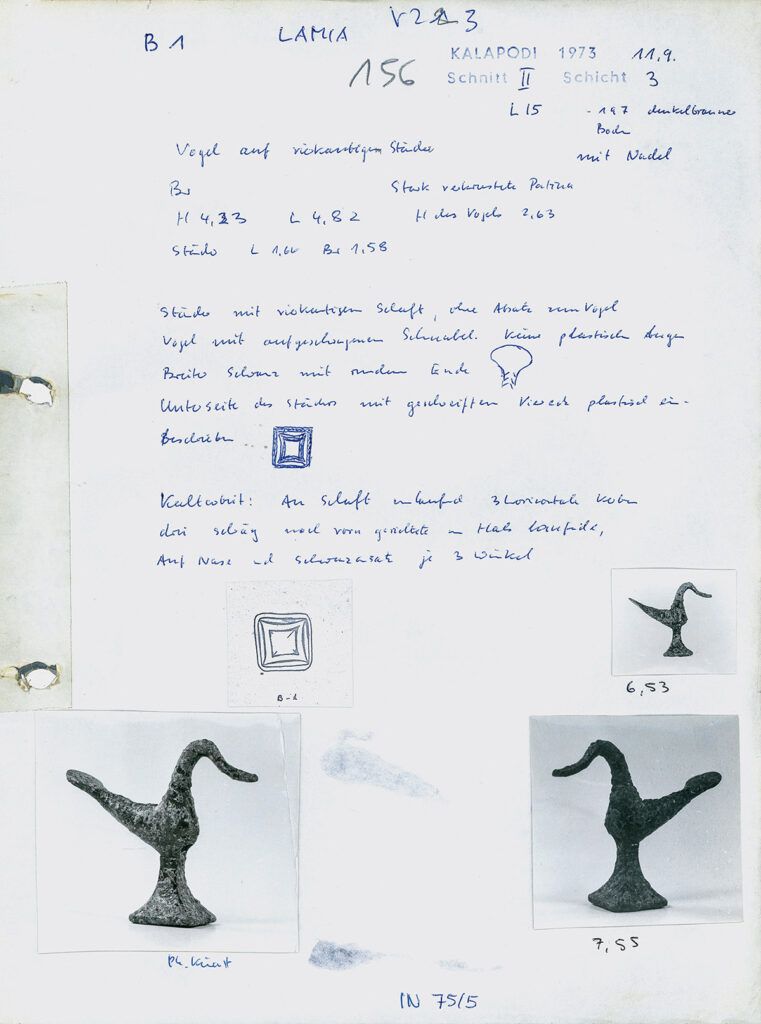 B 1 LAMIA V223
156 KALAPODI 1973 11.9.
Schnitt II Schicht 3
L 15 - 197 dunkelbrauner
Boden
Vogel auf vierkantigem Ständer mit Nadel
Br Stark verkrustete Patina
H 4,33 L 4,82 H des Vogels 2,63
Ständer L 1,60 Br 1,58
Ständer mit vierkantigem Schaft, ohne Absatz zum Vogel
Vogel mit aufgeschwungenem Schnabel. Keine plastischen Augen
Breiter Schwanz mit rundem Ende
Unterseite des Ständers mit geschweiftem Viereck plastisch ein-
Beschrieben
Kaltarbeit: An Schaft umlaufend 3 horizontale Kerben
drei schräg nach vorn gerichtete um Hals laufende,
Auf Nase und Schwanzansatz je 3 Winkel
B-1
6,53
7,55
Ph.
IN 75/5